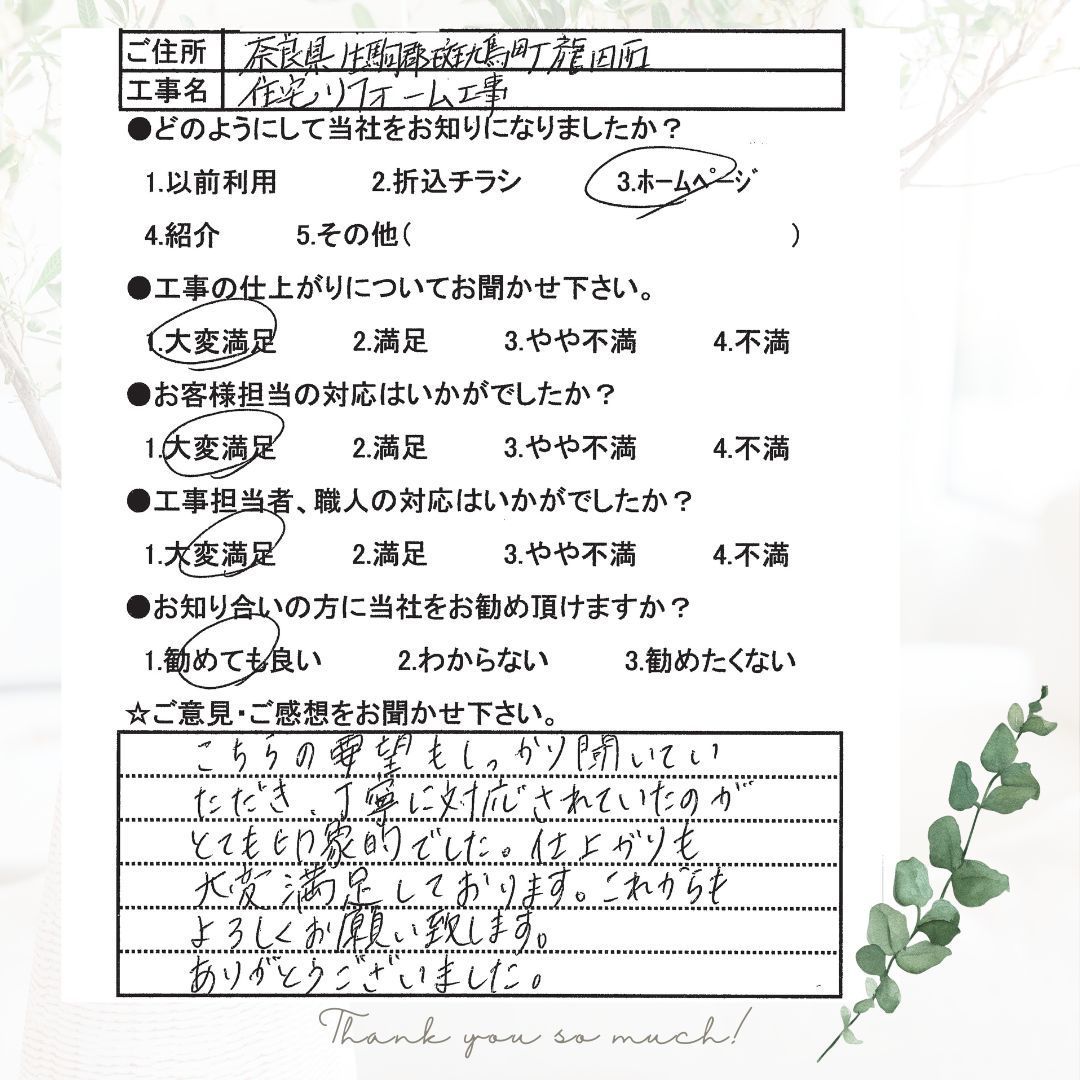 ご住所 奈良県生駒郡斑鳩町龍田西
工事名 住宅リフォーム工事
●どのようにして当社をお知りになりましたか？
1.以前利用 2.折込チラシ 3.ホームページ
4.紹介 5.その他( )
●工事の仕上がりについてお聞かせ下さい。
1.大変満足 2.満足 3.やや不満 4.不満
●お客様担当の対応はいかがでしたか？
1.大変満足 2.満足 3.やや不満 4.不満
●工事担当者、職人の対応はいかがでしたか？
1.大変満足 2.満足 3.やや不満 4.不満
●お知り合いの方に当社をお勧め頂けますか？
1.勧めても良い 2.わからない 3.勧めたくない
☆ご意見・ご感想をお聞かせ下さい。
こちらの要望もしっかり聞いてい
ただき、丁寧に対応されていたのが
とても印象的でした。仕上がりも
大変満足しております。これからも
よろしくお願い致します。
ありがとうございました。
Thank you so much!